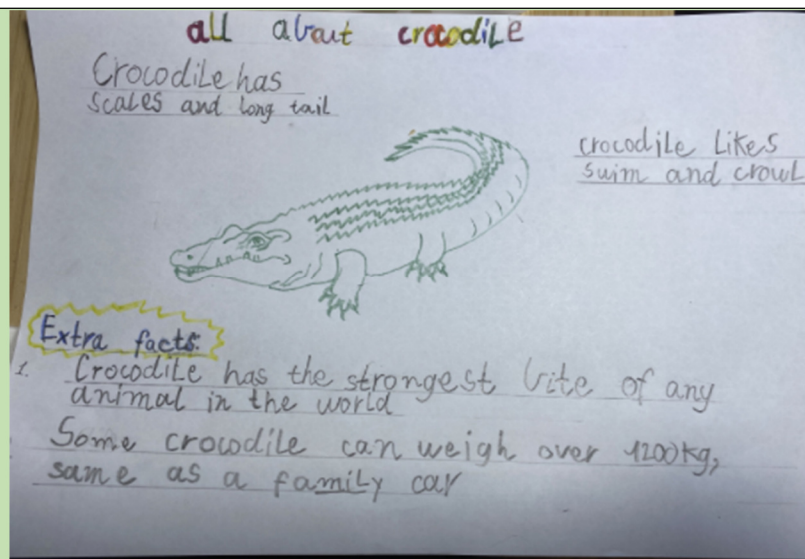 all about crocodile
Crocodile has
scales and long tail
crocodile Likes
suim and crowl
Extra facts:
1. Crocodile has the strongest bite of any
animal in the world
Some crocodile can weigh over 1200kg,
same as a family car